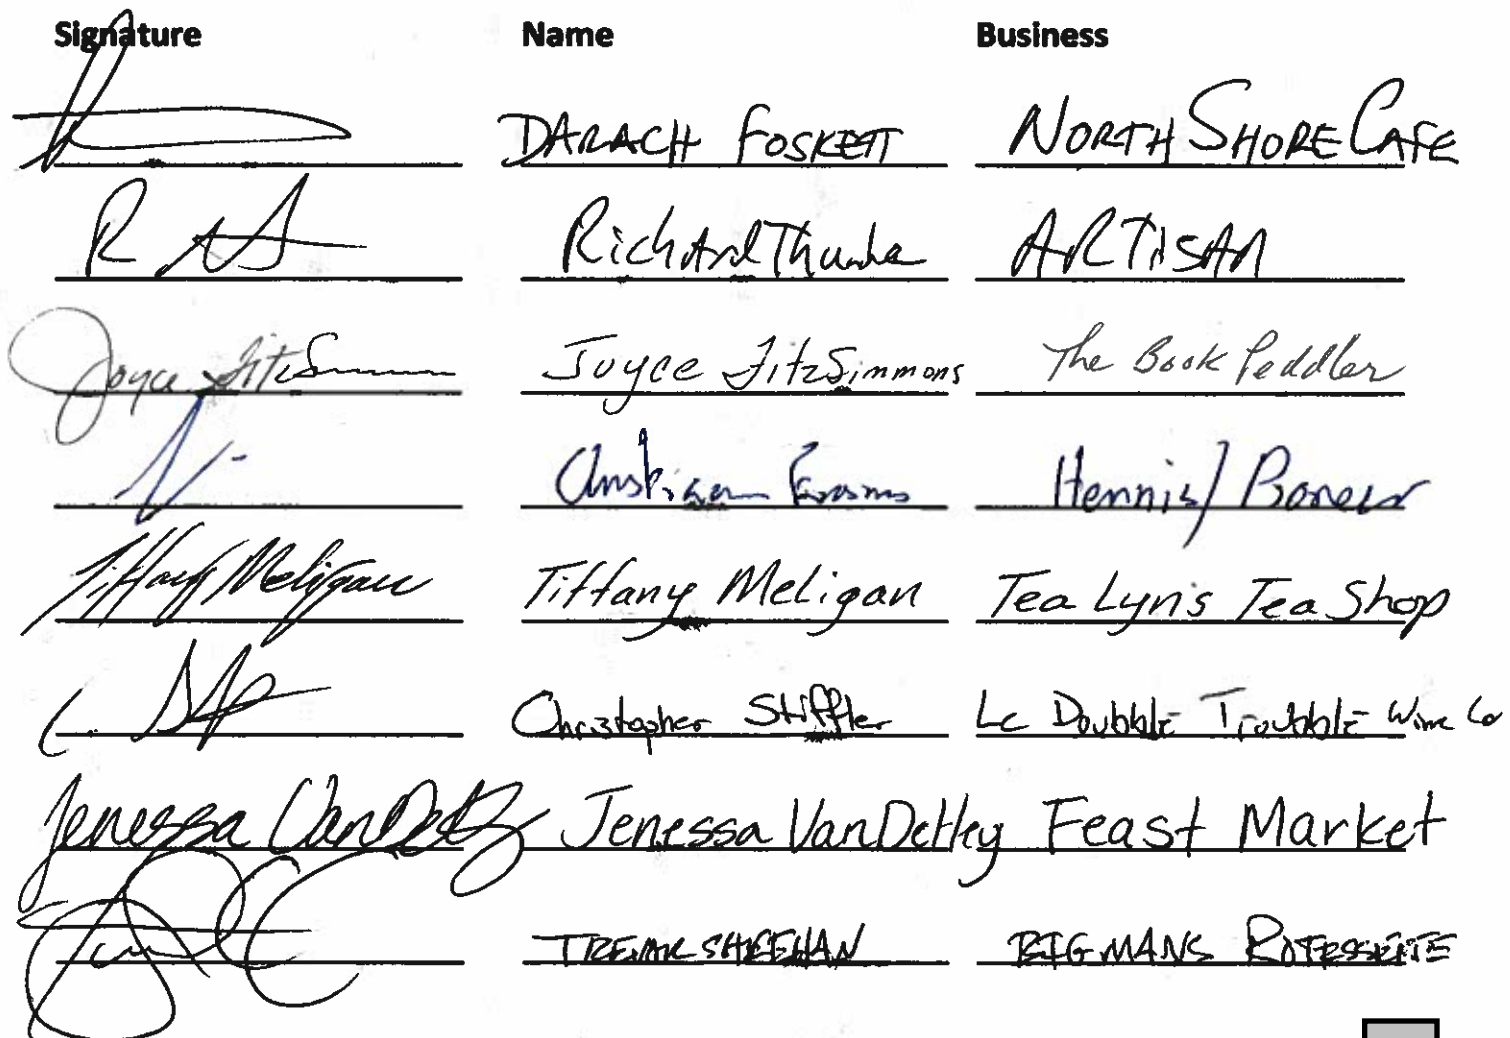 Signature Name Business
DARACH FOSKETT NORTH SHORE CAFE
Richard ARTISAN
Joyce FitzSimmons Joyce FitzSimmons The Book Peddler
Hennis/
Tiffany Meligan Tiffany Meligan Tea Lyn's Tea Shop
Christopher Stiffler Lc Doubble Troubble Wine Co
Jenessa VanDetley Jenessa VanDetley Feast Market
SHEEHAN BIGMANS